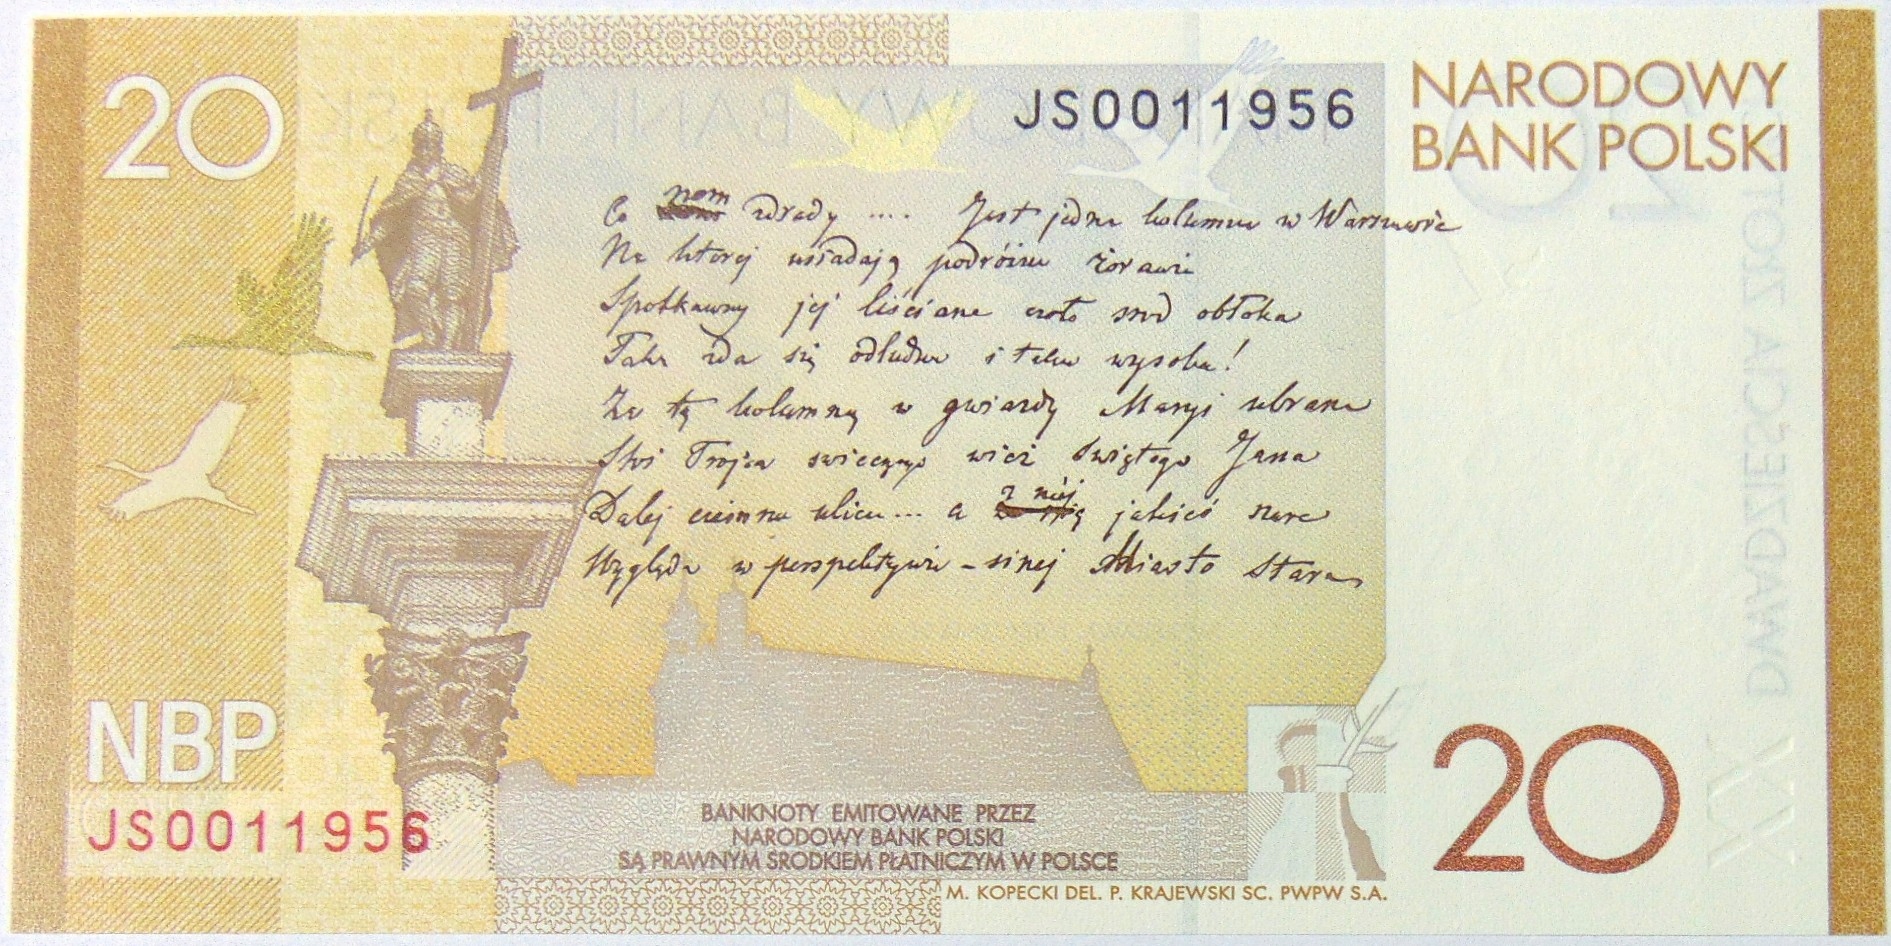 20
JS0011956
NARODOWY
BANK POLSKI
Co nam zdrady .... Jest jedna kolumna w Warszawie
Na ktorej usiadają podróżne żorawie
Spotkawszy jej liściane czoło śród obłoka
Taka zda się odludna i taka wysoka!
Za tą kolumną w gwiazdy Maryi ubrana
Stoi Trojca swiecąca wież świętego Jana
Dalej ciemna ulica... a z niéj jakieś szare
Wygląda w perspektywie – sinej Miasto stare
NBP
JS0011956
BANKNOTY EMITOWANE PRZEZ
NARODOWY BANK POLSKI
SĄ PRAWNYM ŚRODKIEM PŁATNICZYM W POLSCE
20
M. KOPECKI DEL. P. KRAJEWSKI SC. PWPW S.A.
DWADZIEŚCIA ZŁOT